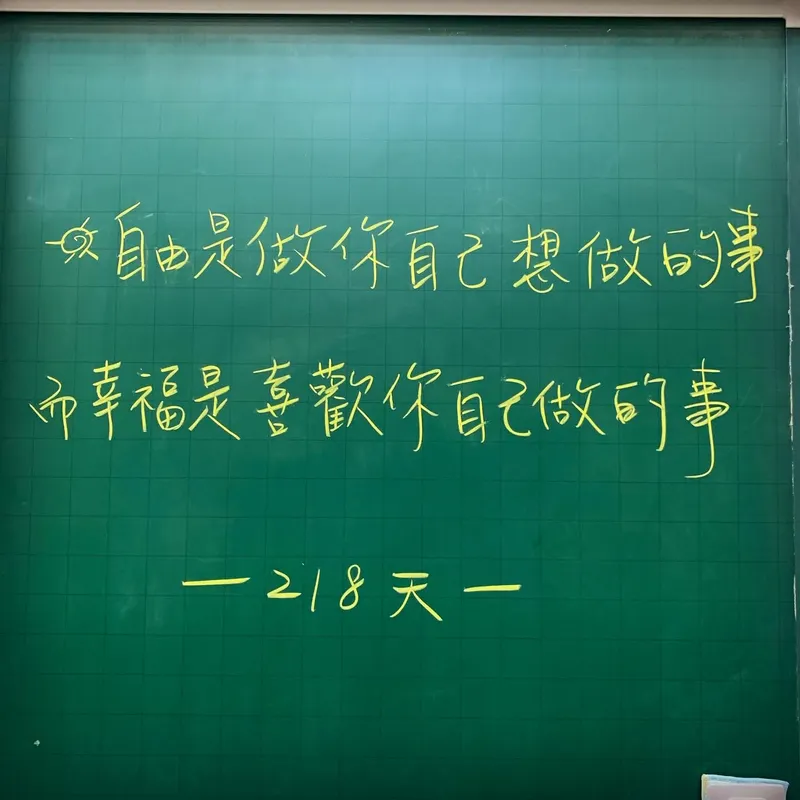 自由是做你自己想做的事
而幸福是喜歡你自己做的事
— 218天 —